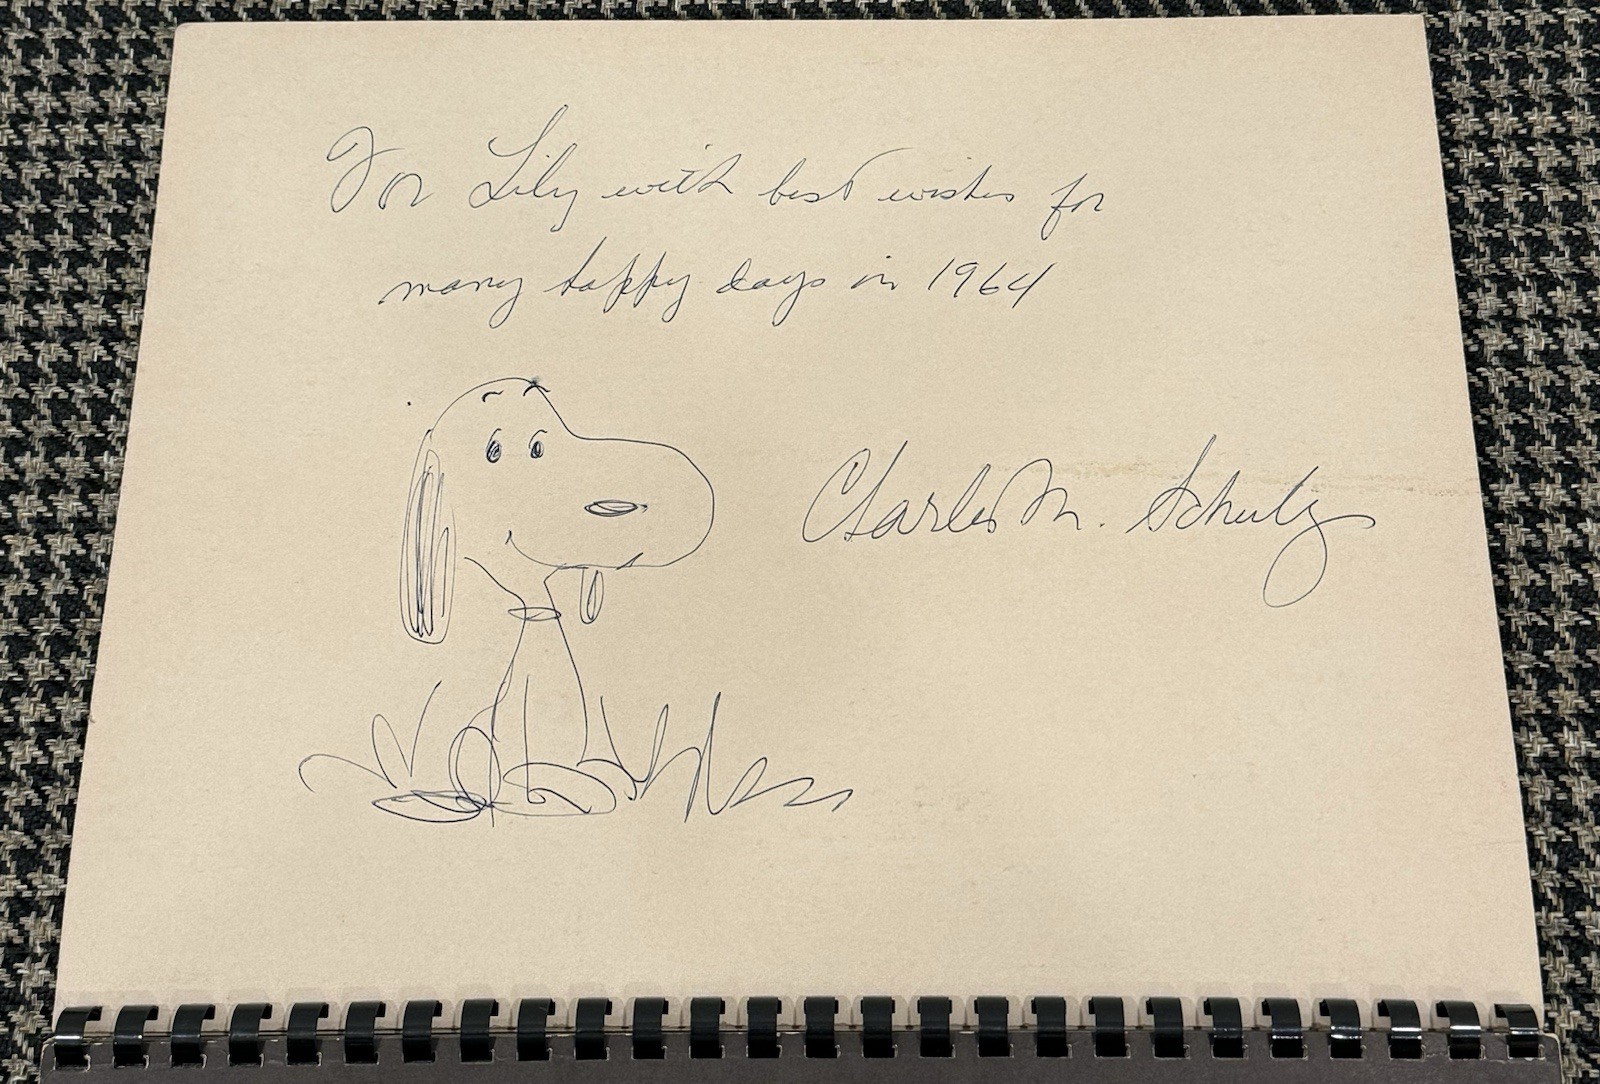 For Lily with best wishes for
many happy days in 1964
Charles M. Schulz